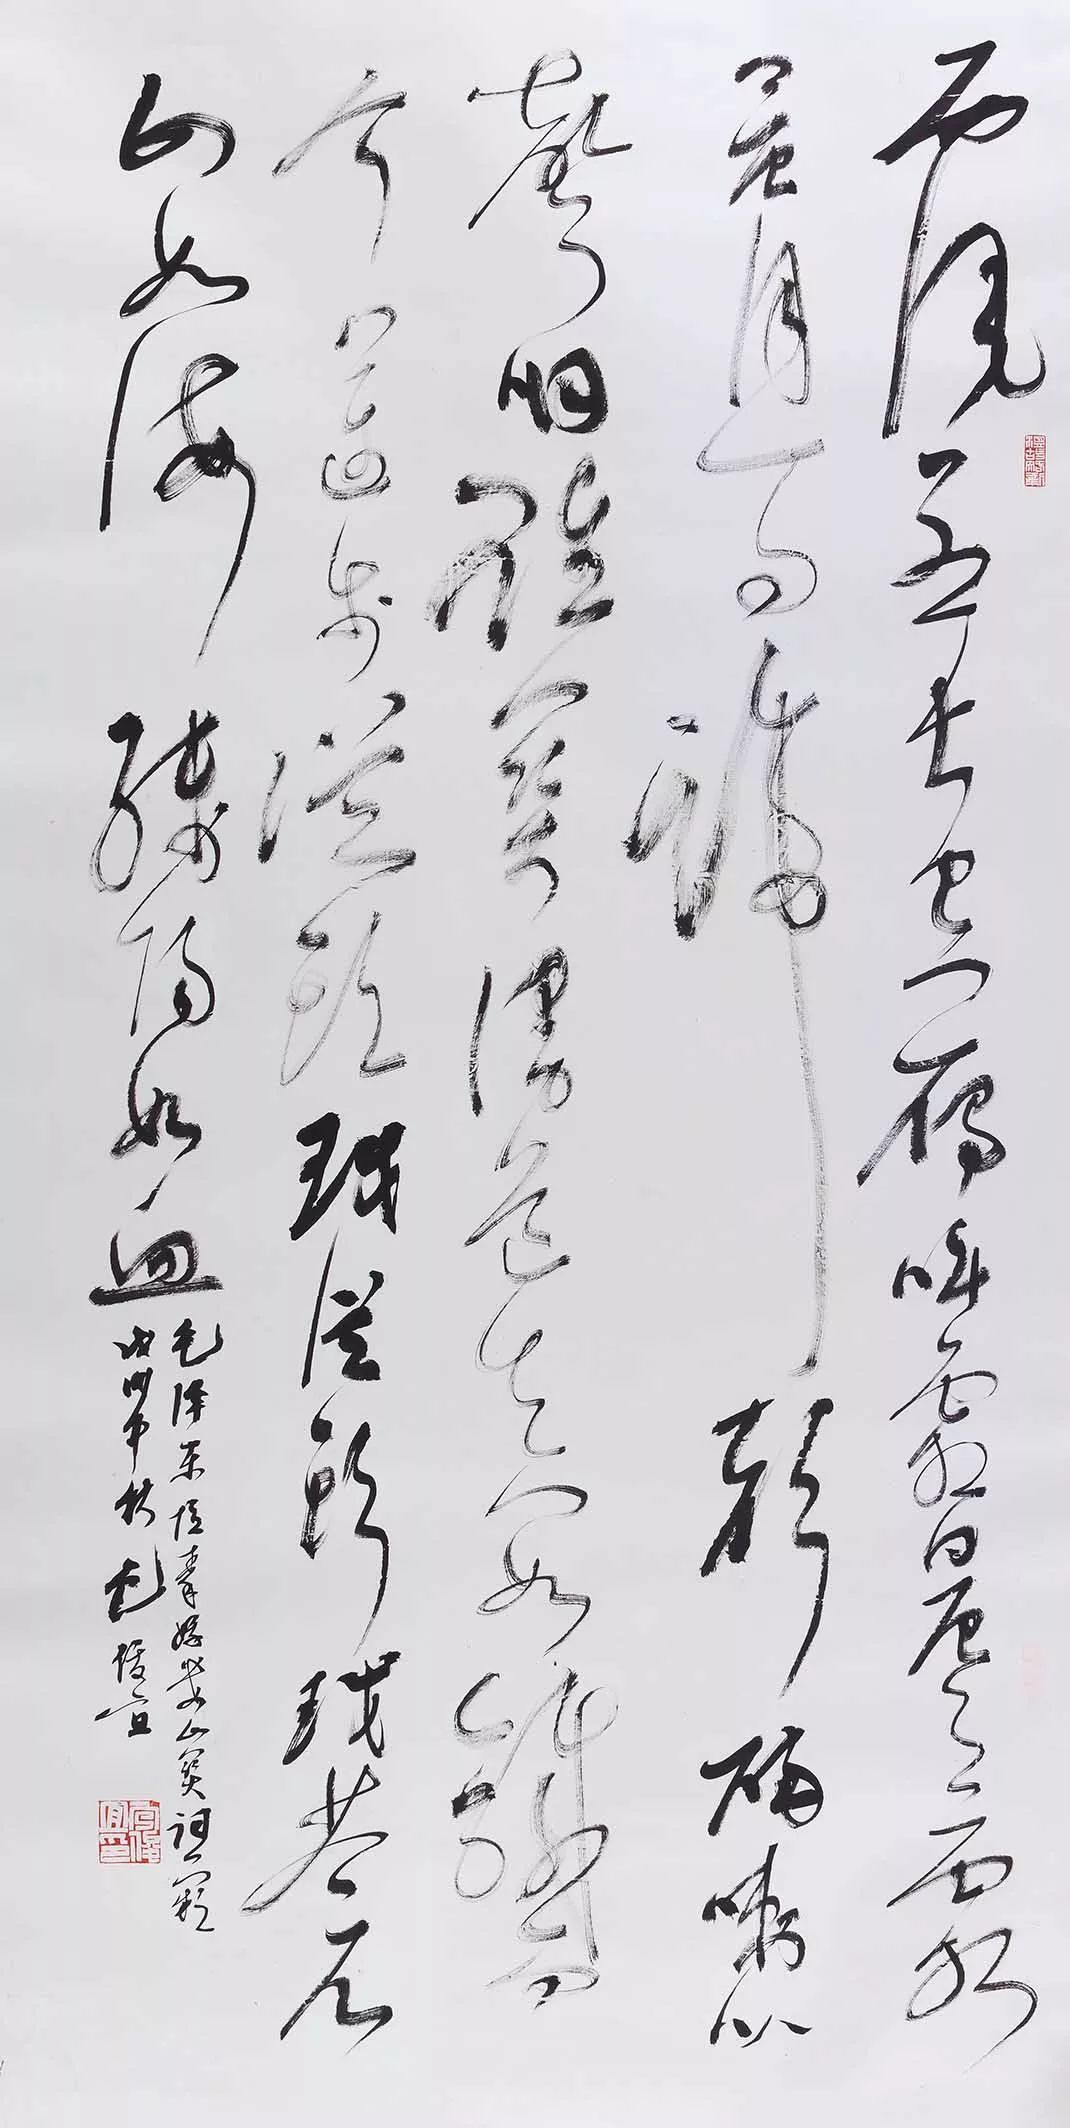 西風烈長空雁叫霜晨月霜
晨月馬蹄聲碎喇叭
聲咽雄關漫道真如鐵而
今邁步從頭越從頭越蒼
山如海殘陽如血
毛澤東憶秦娥婁山關詞一闋
年秋